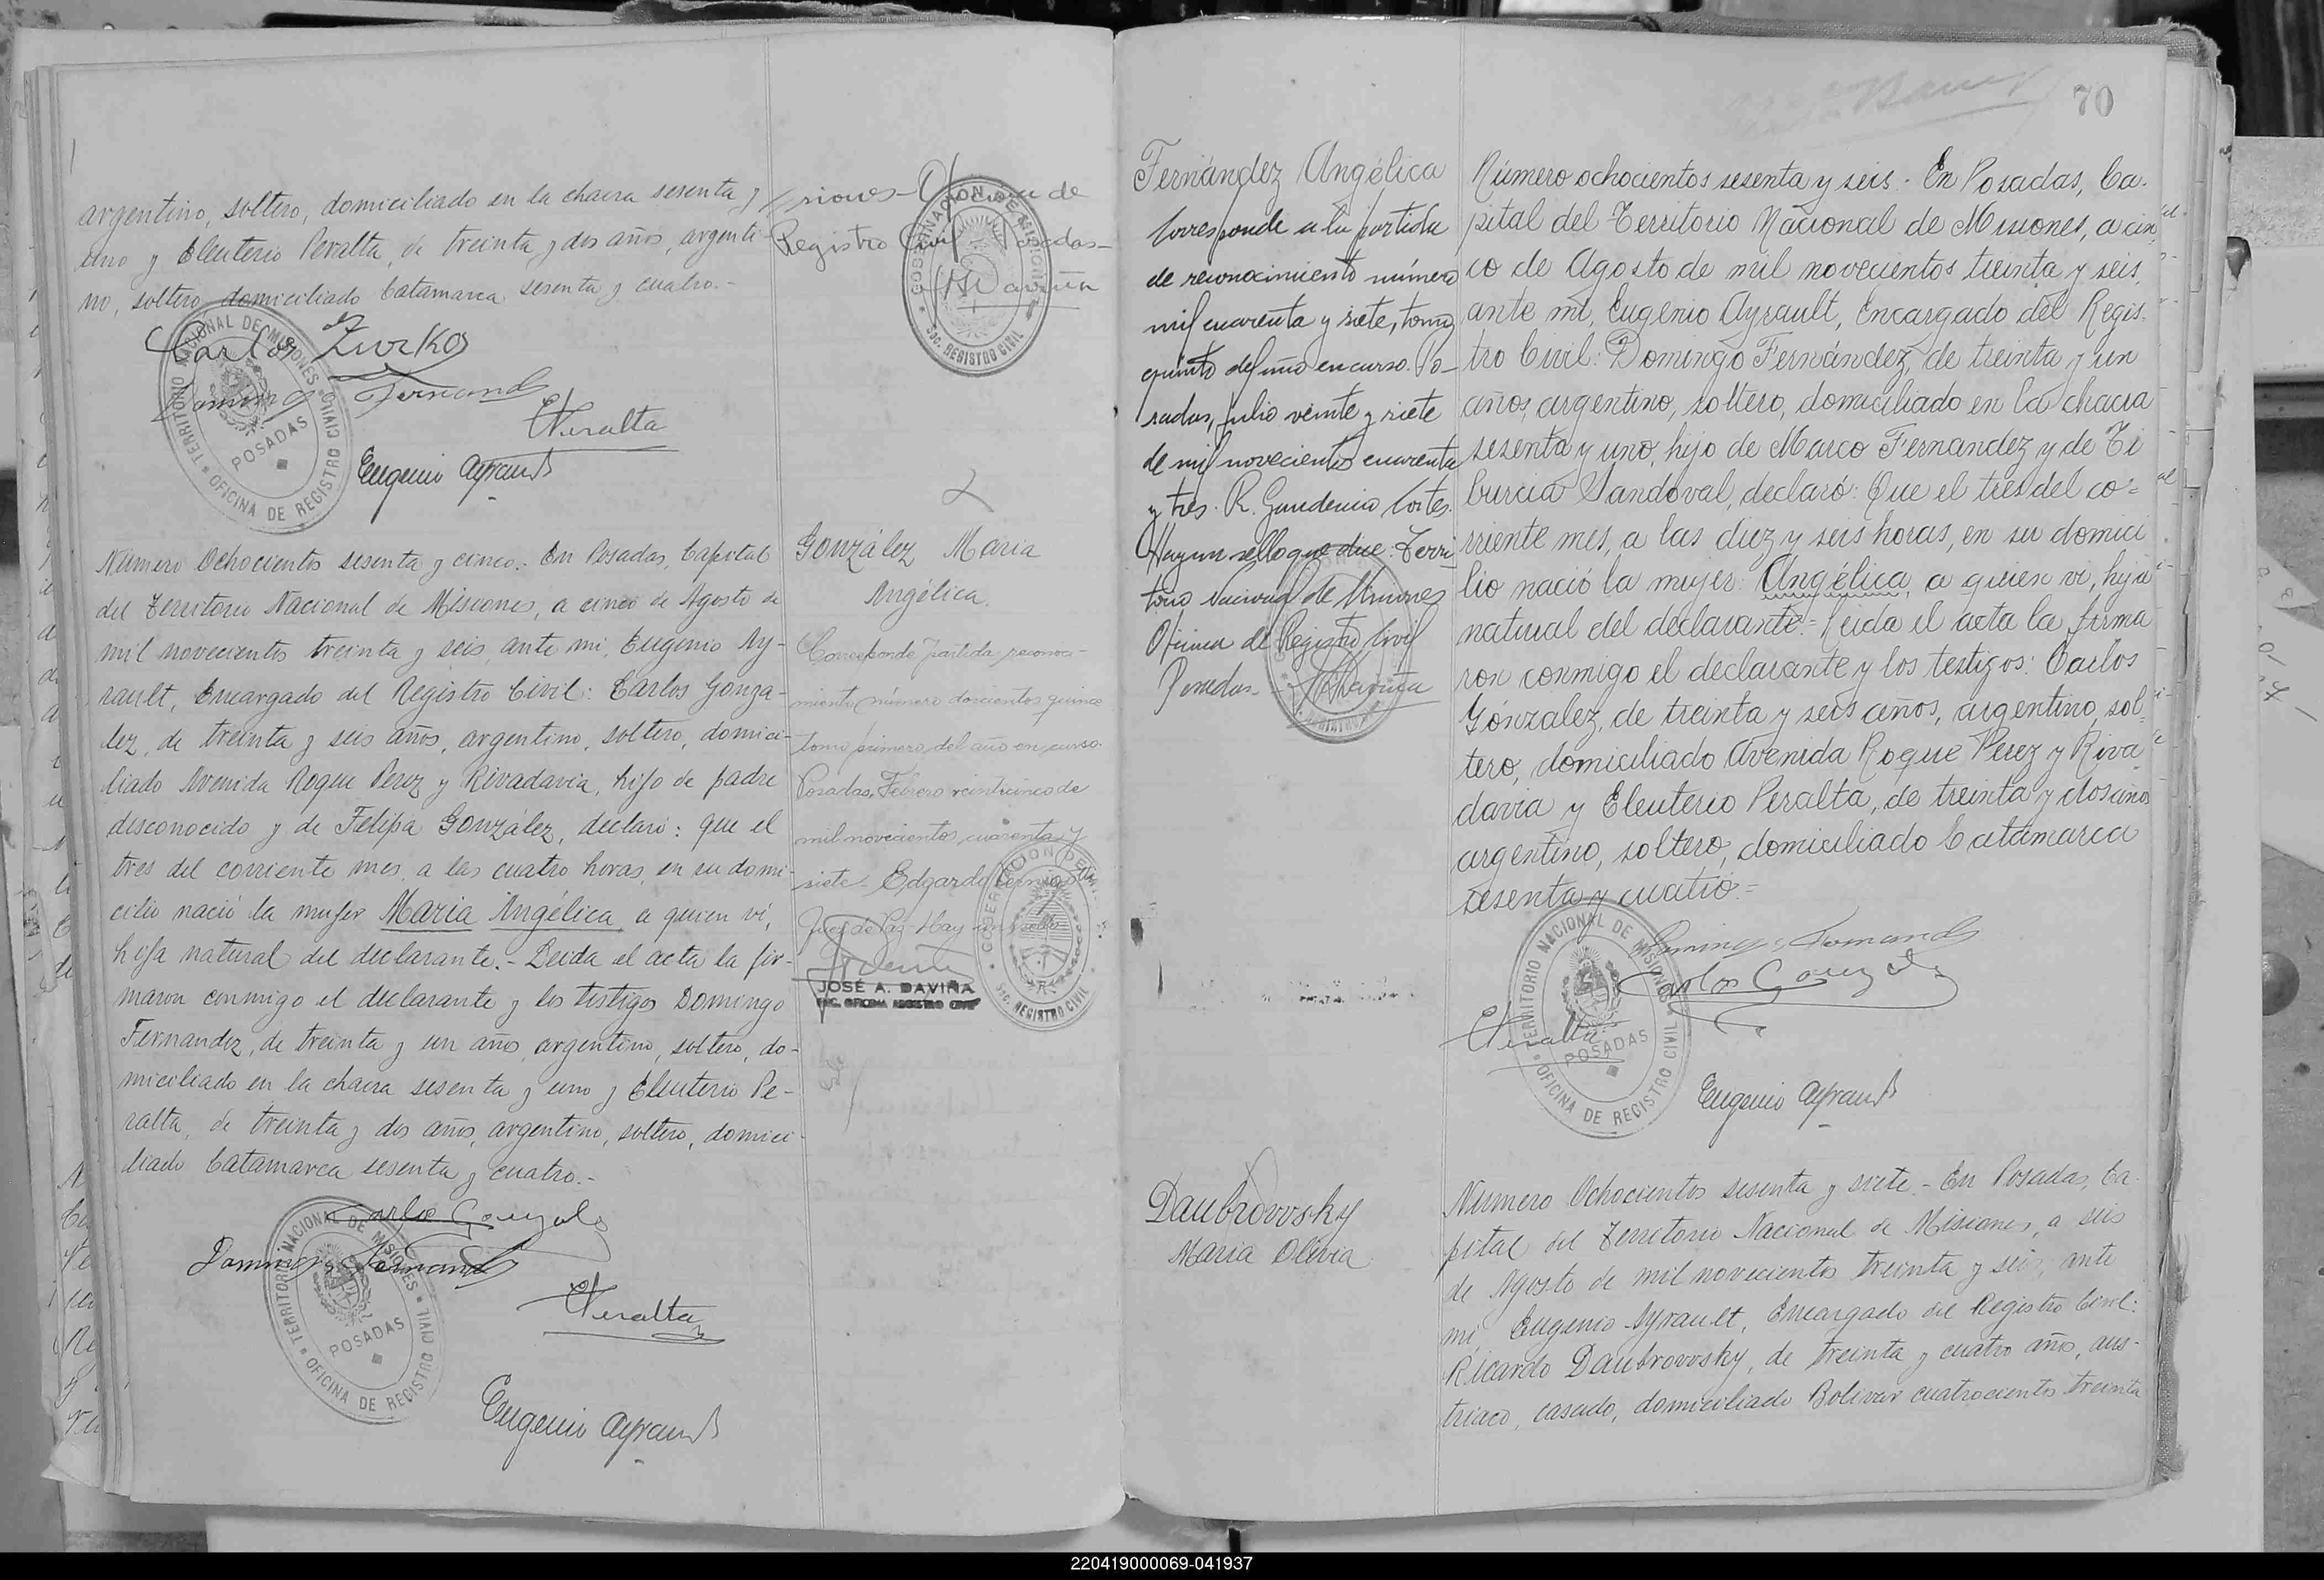 argentino, soltero, domiciliado en la chacra sesenta y
uno y Eleuterio Peralta, de treinta y dos años, argenti-
no, soltero, domiciliado Catamarca sesenta y cuatro.-
Carlos Zurko
Domingo Fernand
EPeralta
Eugenio Ayrault
TERRITORIO NACIONAL DE MISIONES
POSADAS
OFICINA DE REGISTRO CIVIL
siones- Oficina de
Registro Civil Posadas-
JADaviña
GOBERNACION DE MISIONES
SEC. REGISTRO CIVIL
González Maria
Angélica.
Corresponde partida reconoci-
miento número doscientos quince
tomo primero, del año en curso.
Posadas, Febrero veinticinco de
mil novecientos cuarenta y
siete- Edgardo
Juez de Paz- Hay un sello
JOSÉ A. DAVIÑA
ENC. OFICINA REGISTRO CIVIL
GOBERNACION DE
SEC. REGISTRO CIVIL
Número Ochocientos sesenta y cinco.- En Posadas, Capital
del Territorio Nacional de Misiones, a cinco de Agosto de
mil novecientos treinta y seis, ante mi, Eugenio Ay-
rault, Encargado del Registro Civil: Carlos Gonza-
lez, de treinta y seis años, argentino, soltero, domici-
liado Avenida Roque Perez y Rivadavia, hijo de padre
desconocido y de Felipa González, declaró: que el
tres del corriente mes, a las cuatro horas, en su domi-
cilio nació la mujer Maria Angélica, a quien ví,
hija natural del declarante.- Leida el acta la fir-
maron conmigo el declarante y los testigos Domingo
Fernandez, de treinta y un años, argentino, soltero, do-
miciliado en la chacra sesenta y uno y Eleuterio Pe-
ralta, de treinta y dos años, argentino, soltero, domici-
liado Catamarca sesenta y cuatro.-
Carlos Gonzale
Domingo Fernand
EPeralta
Eugenio Ayrault
TERRITORIO NACIONAL DE MISIONES
POSADAS
OFICINA DE REGISTRO CIVIL
70
Fernández Angélica
Corresponde a la partida
de reconocimiento número
mil cuarenta y siete, tomo
quinto del año en curso. Po-
sadas, julio veinte y siete
de mil novecientos cuarenta
y tres. R. Gaudencio Cortes.
Hay un sello que dice: Terri-
torio Nacional de Misiones
Oficina de Registro Civil
Posadas.- JADaviña
Número ochocientos sesenta y seis.- En Posadas, Ca-
pital del Territorio Nacional de Misiones, a cin-
co de Agosto de mil novecientos treinta y seis,
ante mi, Eugenio Ayrault, Encargado del Regis-
tro Civil: Domingo Fernández, de treinta y un
años, argentino, soltero, domiciliado en la chacra
sesenta y uno, hijo de Marco Fernandez y de Ti
burcia Sandoval, declaró: Que el tres del co=
rriente mes, a las diez y seis horas, en su domici
lio nació la mujer: Angélica, a quien vi, hija
natural del declarante.= Leida el acta la firma
ron conmigo el declarante y los testigos: Carlos
Gónzalez, de treinta y seis años, argentino, sol-
tero, domiciliado Avenida Roque Pérez y Riva
davia y Eleuterio Peralta, de treinta y dos años
argentino, soltero, domiciliado Catamarca
sesenta y cuatro=
Domingo Fernand
Carlos Gonzale
EPeralta
Eugenio Ayrault
TERRITORIO NACIONAL DE MISIONES
POSADAS
OFICINA DE REGISTRO CIVIL
Daubrovosky
Maria Olivia
Número Ochocientos sesenta y siete.- En Posadas, Ca-
pital del Territorio Nacional de Misiones, a seis
de Agosto de mil novecientos treinta y seis, ante
mi, Eugenio Ayrault, Encargado del Registro Civil:
Ricardo Daubrovosky, de treinta y cuatro años, aus-
triaco, casado, domiciliado Bolivar cuatrocientos treinta
220419000069-041937